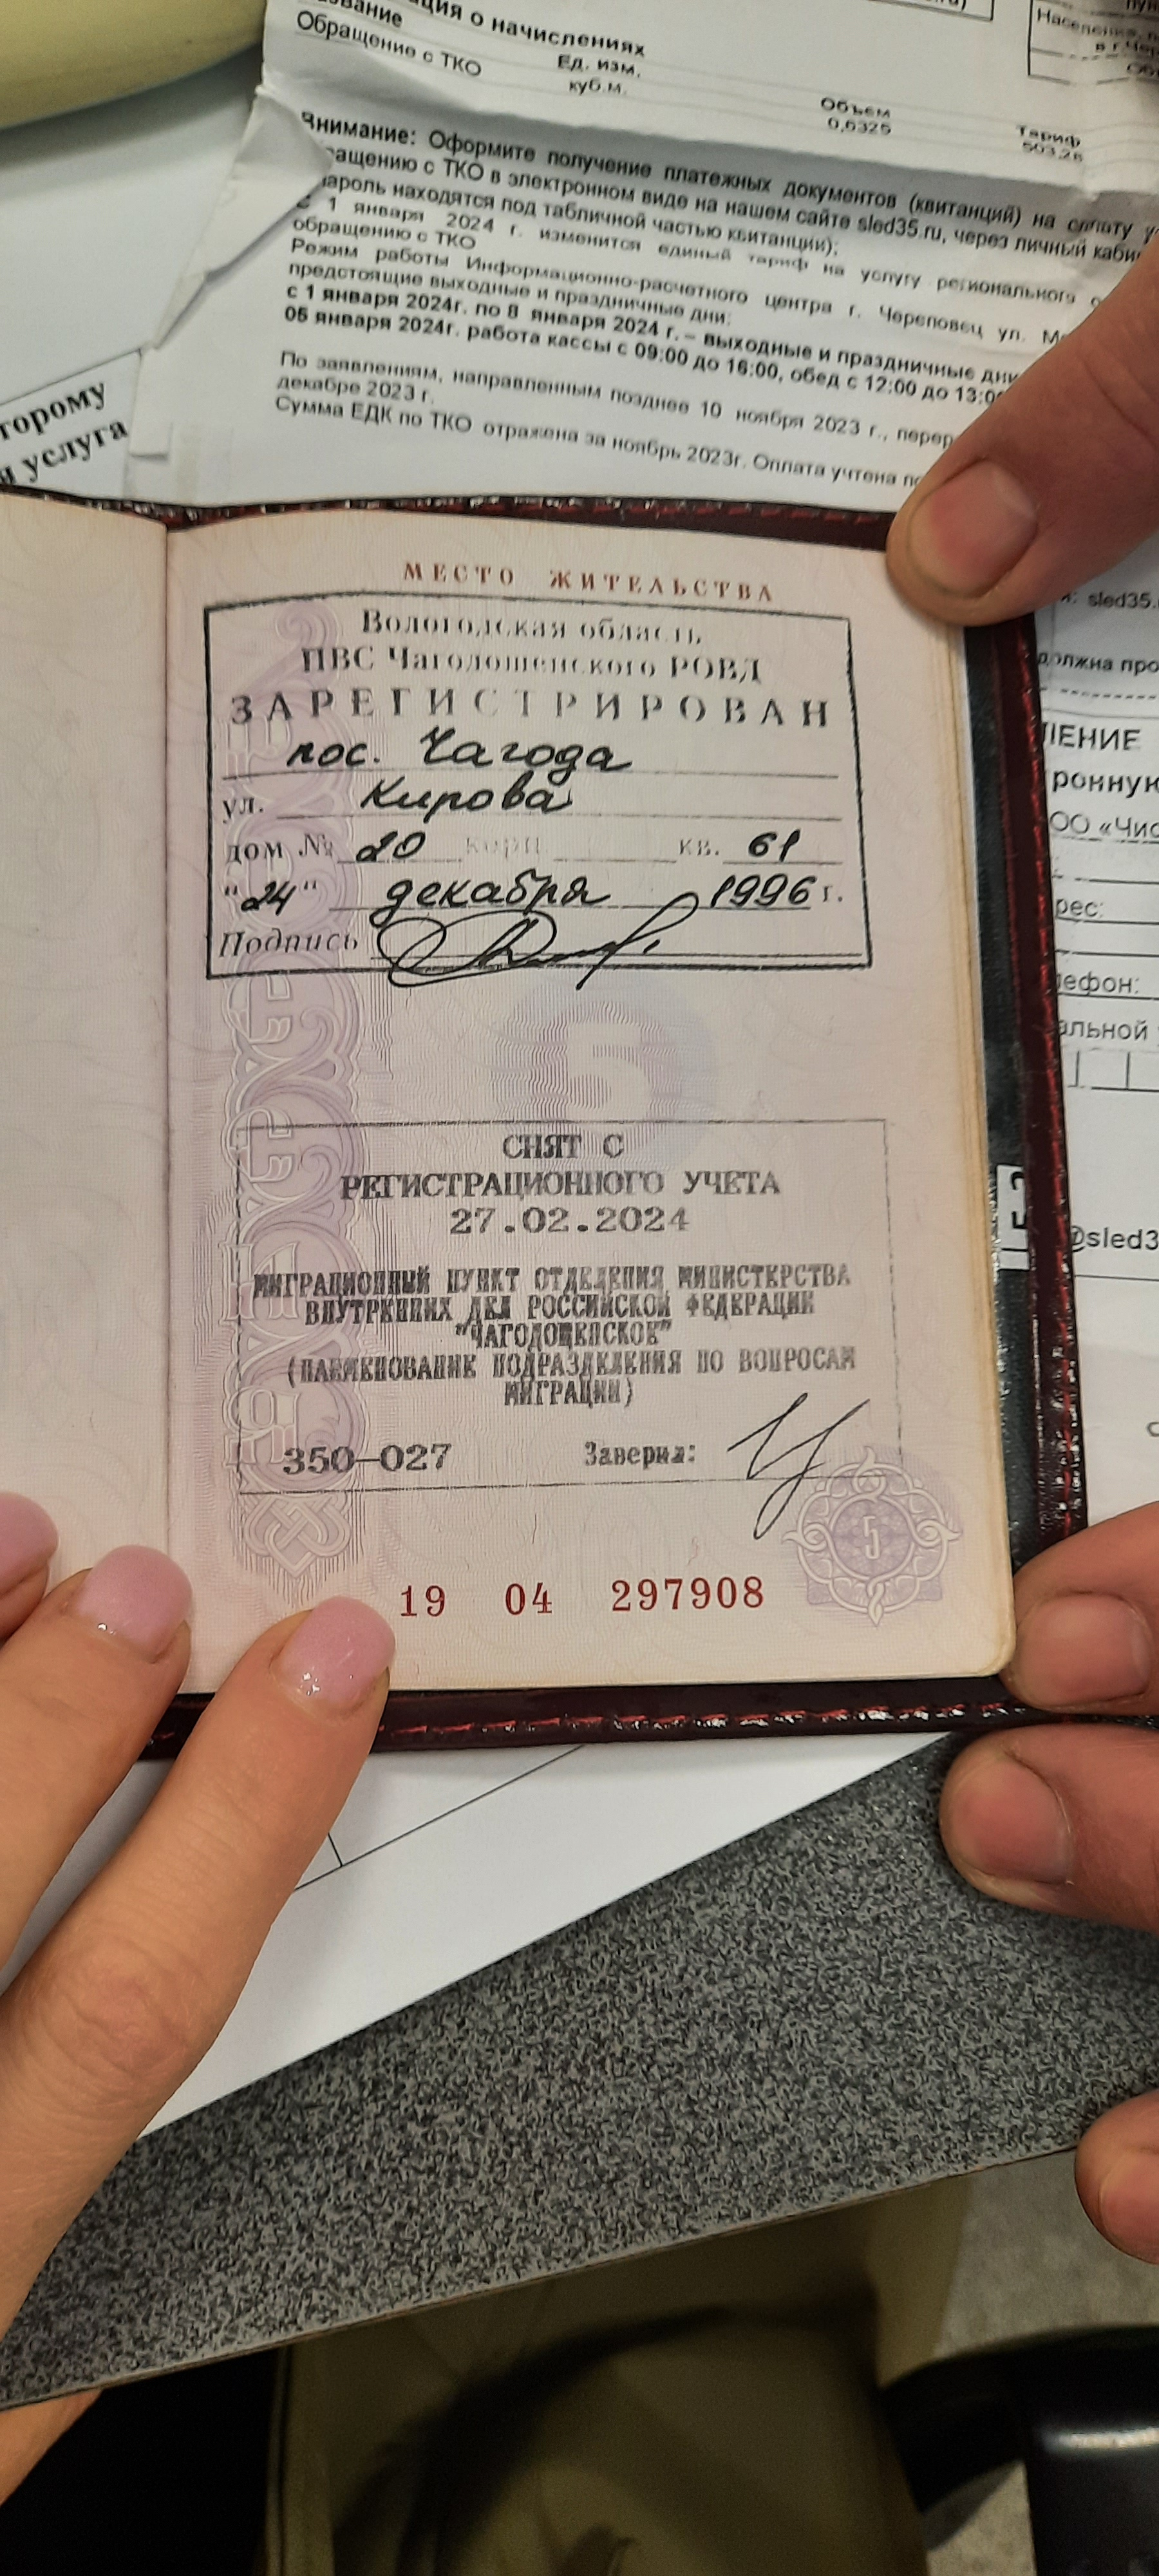 ция о начислениях
Обращение с ТКО
Ед. изм.
куб.м.
Объем
0,6325
Тариф
503,28
Внимание: Оформите получение платежных документов (квитанций) на оплату
ращению с ТКО в электронном виде на нашем сайте sled35.ru, через личный каби
пароль находятся под табличной частью квитанции);
С 1 января 2024 г. изменится единый тариф на услугу регионального
обращению с ТКО
Режим работы Информационно-расчетного центра г. Череповец ул.
предстоящие выходные и праздничные дни:
с 1 января 2024г. по 8 января 2024 г. – выходные и праздничные дни
05 января 2024г. работа кассы с 09:00 до 16:00, обед с 12:00 до 13:00
По заявлениям, направленным позднее 10 ноября 2023 г., перер
декабре 2023 г.
Сумма ЕДК по ТКО отражена за ноябрь 2023г. Оплата учтена по
торому
услуга
МЕСТО ЖИТЕЛЬСТВА
Вологодская область
ПВС Чагодощенского РОВД
ЗАРЕГИСТРИРОВАН
пос. Чагода
ул. Кирова
дом № 20 корп. кв. 61
"24" декабря 1996 г.
Подпись
5
СНЯТ С
РЕГИСТРАЦИОННОГО УЧЕТА
27.02.2024
МИГРАЦИОННЫЙ ПУНКТ ОТДЕЛЕНИЯ МИНИСТЕРСТВА
ВНУТРЕННИХ ДЕЛ РОССИЙСКОЙ ФЕДЕРАЦИИ
"ЧАГОДОЩЕНСКОЕ"
(НАИМЕНОВАНИЕ ПОДРАЗДЕЛЕНИЯ ПО ВОПРОСАМ
МИГРАЦИИ)
350-027 Заверил:
5
19 04 297908
sled35.
должна про
ЛЕНИЕ
ронную
ОО «Чис
рес:
лефон:
альной
@sled3